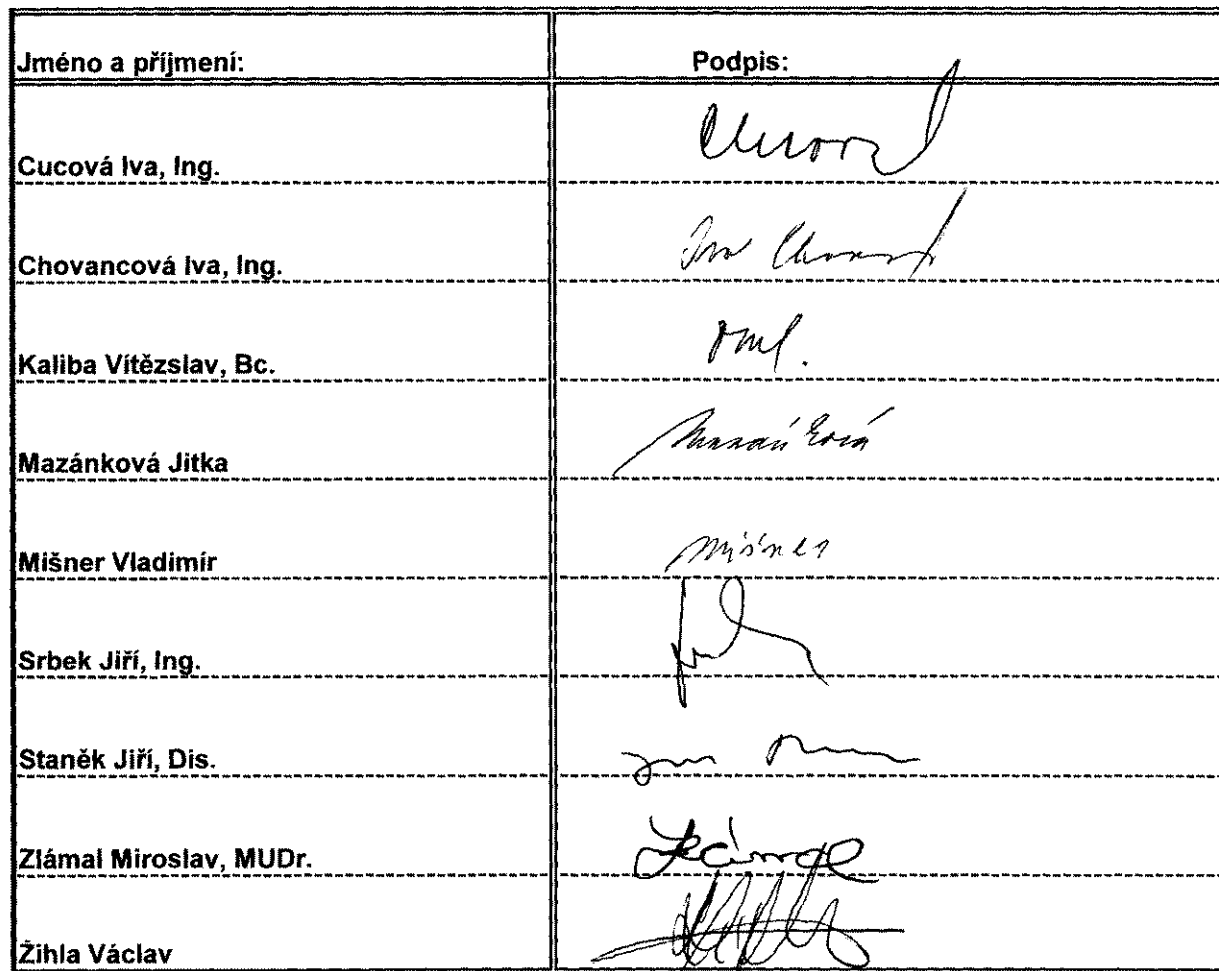 Jméno a příjmení: Podpis:
Cucová Iva, Ing.
Chovancová Iva, Ing.
Kaliba Vítězslav, Bc.
Mazánková Jitka Mazánková
Mišner Vladimír Mišner
Srbek Jiří, Ing.
Staněk Jiří, Dis.
Zlámal Miroslav, MUDr.
Žihla Václav